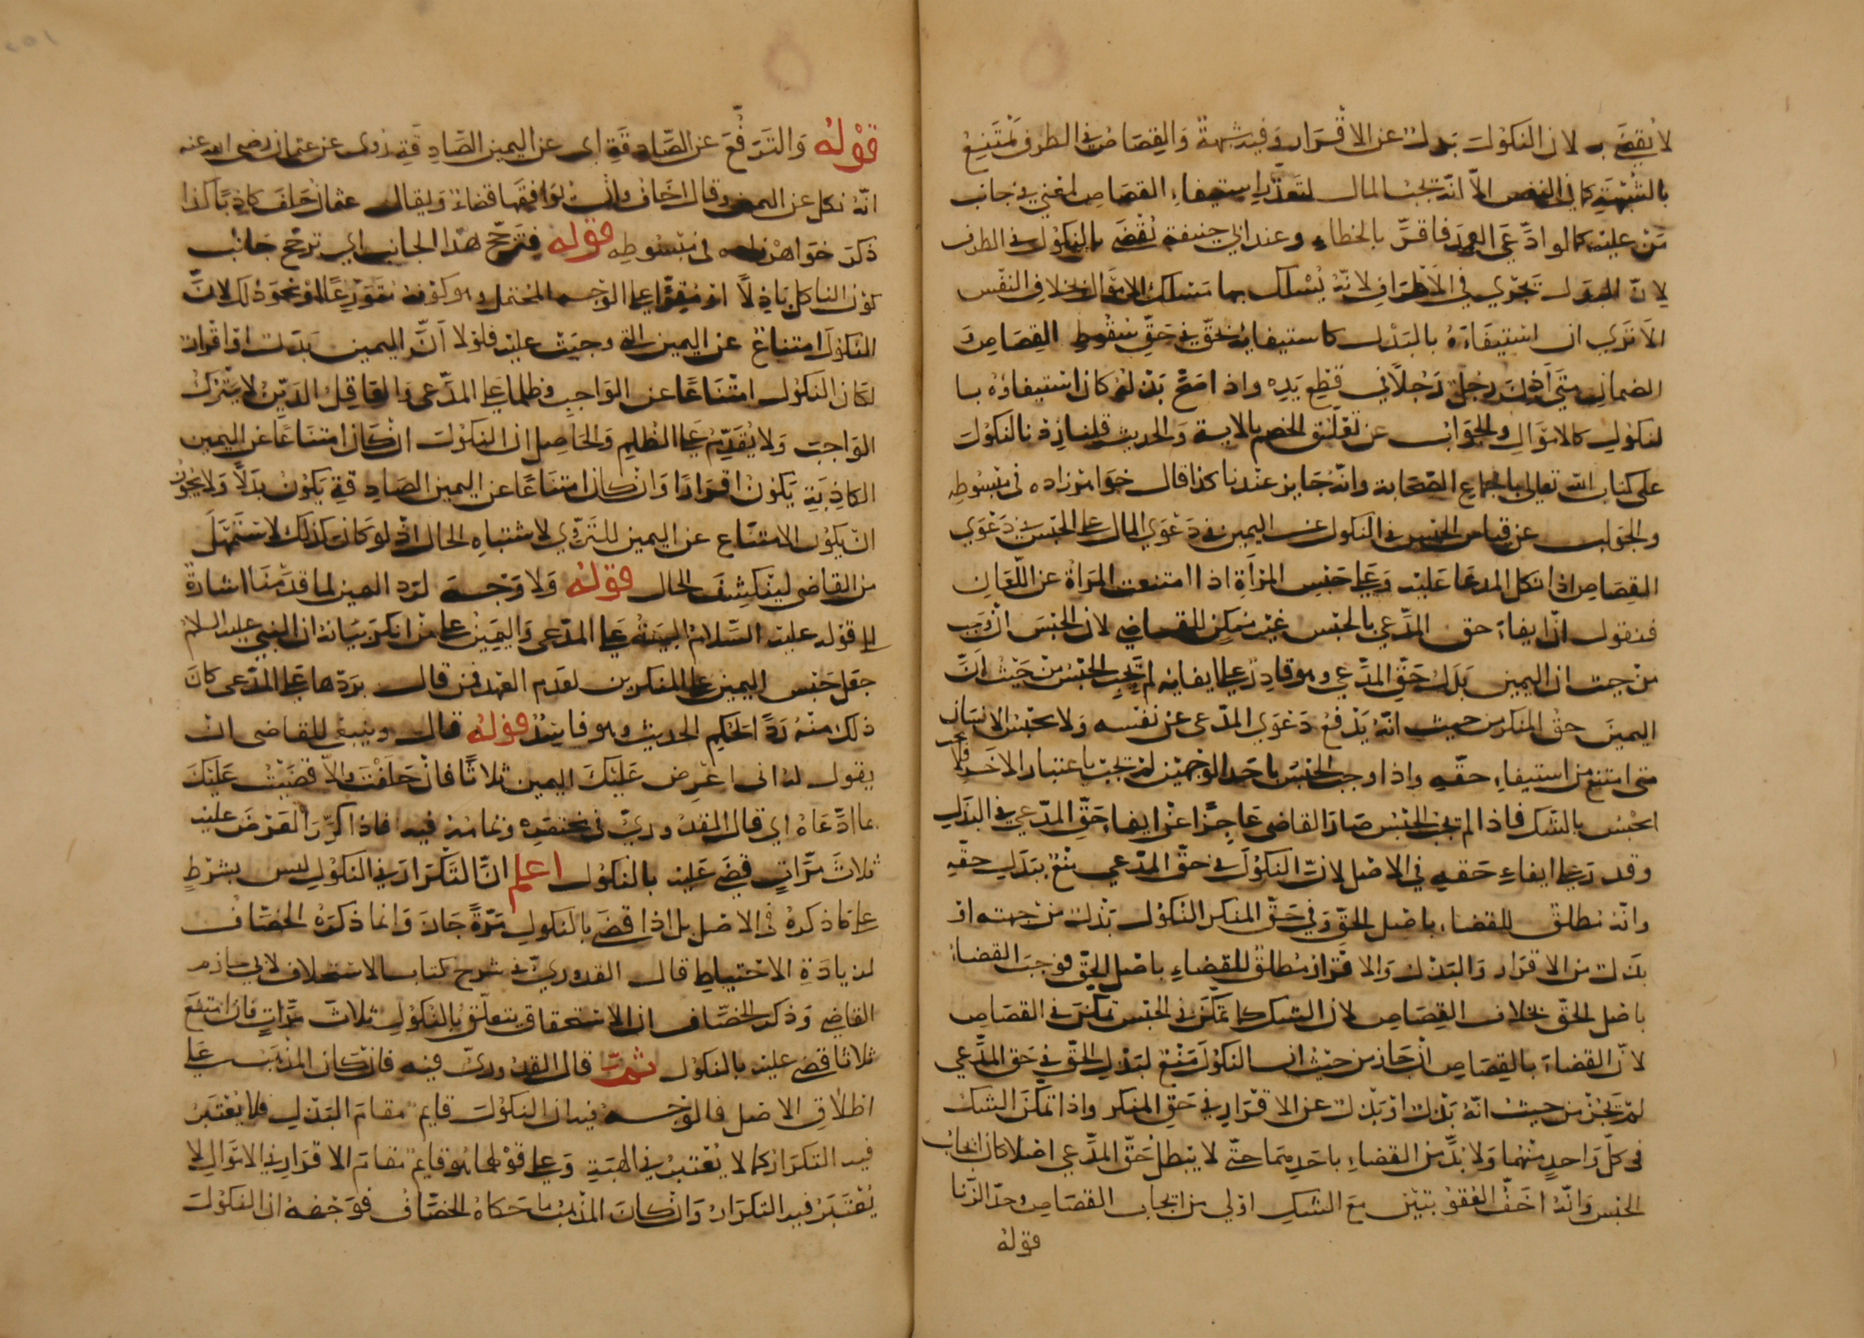 لا يُقضَى به لان النكولَ بدلٌ عن الاقرار وفيه شبهةٌ والقصاص في الطرف يمتنعُ
بالشُّبْهَةِ كما في النفس الّا انّه يجبُ المال لتعذّر استيفاء القصاص لمعنيً في جانب
مَن عليه كما لو ادّعَى العمدَ فاقرّ بالخطاء وعند ابي حنيفة يُقْضَى بالنكول في الطرف
لانّ البدل يجري في الاطرافِ لانّه يُسْلَك بها مَسْلك الاموال بخلاف النّفْس
الا تري ان استيفاءَهُ بالبَذْل كاستيفائه بحقٍّ في حقّ سقوط القصاص وَ
الضمانِ متي اَذِنَ رجلٌ رَجُلاً في قطع يَدِه واذا صحّ بذلهُ كان استيفاؤُهُ با
لنكول كالاموال والجوابُ عن تعلّق الخصم بالاية والحديث قلنا زدنا النكولَ
علي كتاب الله تعالي باجماع الصّحابة وانّه جَايز عندنا كذا قال خواهرزاده في مبسُوطِه
والجوابُ عن قياس الحبس في النكول عن اليمين في دَعْوَي المال علي الحبس في دَعْوَي
القصاص اذا نكل المدعا عَليه وَعلي حَبس المرْأَةِ اذا امتنعت المرأة عن اللّعان
فنقول انّ ايفاءَ حق المدّعي بالحبس غير ممكن للقاضي لان الحبْسَ ان وجبَ
من حيث ان اليمين بَدَلُ حَقّ المدّعي وهو قادِرٌ علي ايفائه لم يَجب الحبسُ من حَيْثُ انّ
اليمينَ حقُّ المنكر من حيث انّه يَدْفعُ دَعْوَي المدّعي عن نفسِه وَلا يحبسُ الانسان
متي امتنع من استيفاء حقّهِ واذا وجب الحبسُ باحد الوجهين لم يجبْ باعتبار الاخر فلا يجب
الحبْسُ بالشّك فاذا لم يجب الحبْسُ صار القاضي عَاجِزًا عن ايفاء حَقّ المدّعي في البدَلِ
وقدر علي ايفاءِ حَقهِ في الاصْل لانّ النكولَ في حقّ المدّعي منْع بدَلِ حقّهِ
وانّه مُطلقٌ للقضاء باصْل الحقِّ وَفي حَقّ المنكر النكولُ بَذْلٌ من جهته او
بدَل من الاقرار والبَذْل وَالاقرَار مُطلقٌ للقضاءِ باصْل الحقّ فوجب القضاءُ
باصْل الحقّ بخلاف القِصَاصِ لان الشك كما تمكّنَ في الحبْس تمكّنَ في القصاصِ
لانّ القضاءَ بالقصَاص ان جَاز من حيْث ان النكولَ مَنْع لبَدَلِ الحقّ في حق المدّعي
لم يَجُز من حيث انّهُ بَذْلٌ او بدَل عن الاقرار في حَقّ المنكر واذا تمكّنَ الشكُ
في كلّ وَاحدٍ منهما وَلا بدّ من القضاءِ باحدهِمَا حتّي لا يبْطل حقّ المدّعي اصْلا كان ايجابُ
الحبْس وَانّهُ اخفُّ العُقوبتين مَعَ الشكِ اولي من ايجاب القصاص وحدّ الزّنا
قولهُ
قوْلهُ وَالتَرفّعَ عن الصّادِقةِ اي عن اليمين الصّادِقةِ رُوي عن عثمان رضي الله عنه
انّه نكل عن اليمين وقال اخَافُ ان يوَافِقَها قضاءٌ وَيقال عثمان حَلفَ كاذِبًا كذا
ذكرَ خواهرزاده في مبسُوطِه قوله فَترجّح هذا الجانب اي ترجّح جانبُ
كوْن الناكل بَاذِلاً او مُقِرًّا علي الوجْه المحتمل وهو كونهُ متورّعًا او نحو ذلك لانّ
النكولَ امتناعٌ عن اليمين التي وجبَتْ عليه فلولا انّ اليمين بدَلٌ او اقرارٌ
لكان النكول امتنَاعًا عن الواجب وظلما علي المدّعي والعاقِلُ الدَيّنُ لا يتْركُ
الوَاجبَ وَلا يُقدّمُ علي الظلمِ وَالحَاصِل ان النكولَ ان كان امتناعًا عن اليمين
الكاذبةِ يكونُ اقرَارًا وَان كان امتنَاعًا عن اليمين الصّادِقةِ يكون بَذلاً وَلا يجوزُ
ان يكون الامتناع عن اليمين للتَروّي لاشتباهِ الحال اذ لو كان كذلك لاستَمْهلَ
من القاضي لينكشِفَ الحال قولهُ وَلا وَجْهَ لردّ اليمين لما قدّمنَا اشارةٌ
الي قوله عليه السّلام البينةُ علي المدّعي وَاليمينُ علي من انكرَ بيَانه ان النبي عليه السلام
جعَل جنس اليمين علي المنكرين لعدَم العهد فمن قال بردّها علي المدّعي كانَ
ذلك منْهُ رَدًّا لحُكم الحديث وهو فاسِدٌ قولهُ قال وينبغي للقاضي انْ
يقول لهُ اني اعْرِض عَليْكَ اليمين ثلاثًا فان حَلفْتَ وَالاّ قضيْتُ عَليْكَ
بما ادّعاهُ اي قال القدُوريّ في مختصرِه وتمامهُ فيه فاذا كرّرَ العَرْضَ عليه
ثلاثَ مَرّاتٍ قضَي عَليْه بالنكول اعلم انّ التكرارَ في النكولِ ليس بشرْطٍ
علي مَا ذكرهُ في الاصْل بل اذا قضَي بالنكولِ مَرّةً جَاز وَانما ذكرهُ الخصّافُ
لزيادةِ الاحتياطِ قال القدوريّ في شرح كتاب الاستحلاف لابي حازم
القاضي وَذكرَ الخصّاف ان الاستحقاق يتعلّقُ بالنكولِ ثلاثَ مرّاتٍ فان امتنعَ
ثلاثا قضي عليه بالنكولُ ثمّ قال القدُوريّ فيه فان كان المذهبُ علي
اطلاقِ الاصْل فالوجْهُ فيه ان النكولَ قايم مقامَ البَذْلِ فلا يُعْتبَرُ
فيه التكرَار كما لا يُعْتبرُ في الهبَةِ وَعلي قولهما هو قايم مقامَ الاقرَارِ في الاموَالِ لا
يُعْتبَرُ فيه التكرَارُ وَان كانَ المذهبُ ما حَكاهُ الخصّافُ فوَجْهُه ان النكولَ